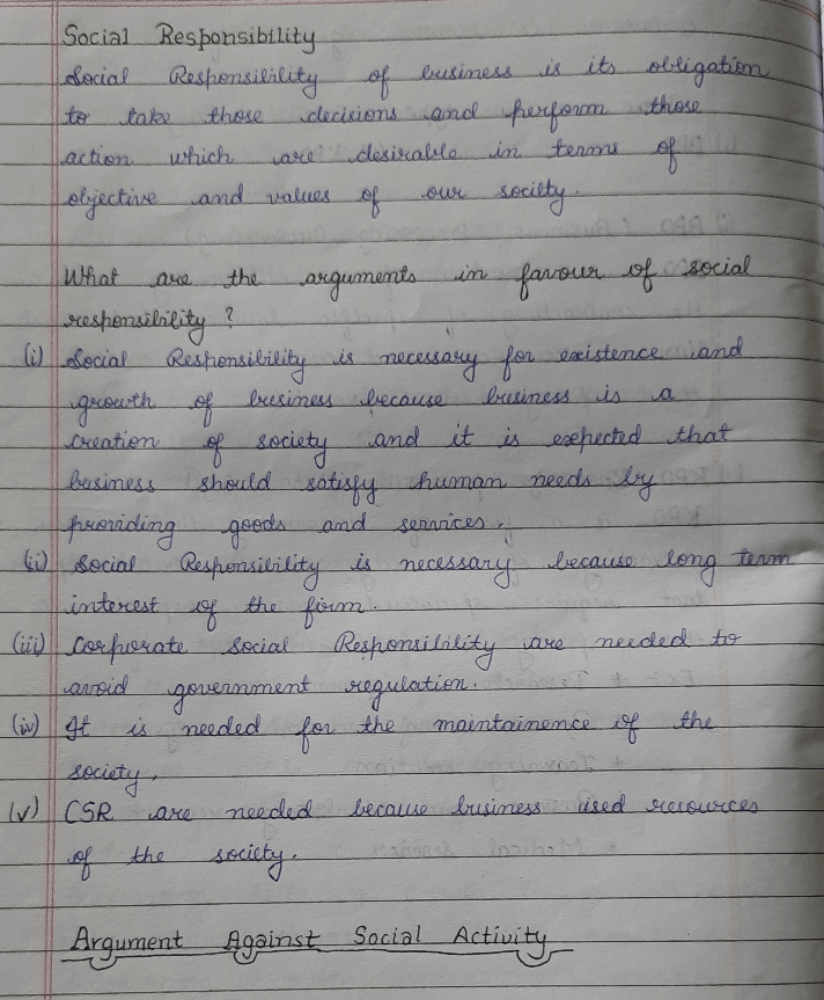 Social Responsibility
Social Responsibility of business is its obligation
to take those decisions and perform those
action which are desirable in terms of
objective and values of our society.
What are the arguments in favour of social
responsibility ?
(i) Social Responsibility is necessary for existence and
growth of business because business is a
creation of society and it is expected that
business should satisfy human needs by
providing goods and services.
(ii) Social Responsibility is necessary because long term
interest of the firm.
(iii) Corporate Social Responsibility are needed to
avoid government regulation.
(iv) It is needed for the maintainence of the
society.
(v) CSR are needed because business used resources
of the society.
Argument Against Social Activity